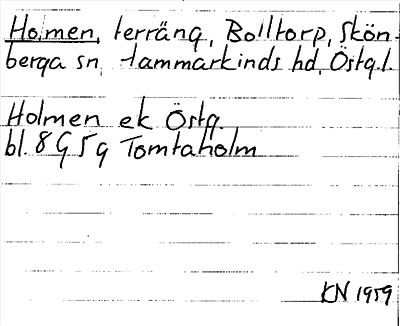 Holmen, terräng, Bolltorp, Skön-
berga sn, Hammarkinds hd, Östg.l.
Holmen ek Östg.
bl. 8 G 5 g Tomtaholm
KN 1959